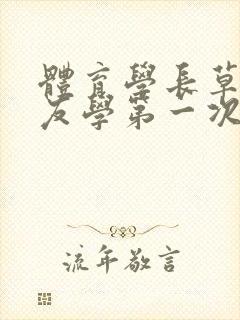 體育學長草
友學第一次
流年敬言